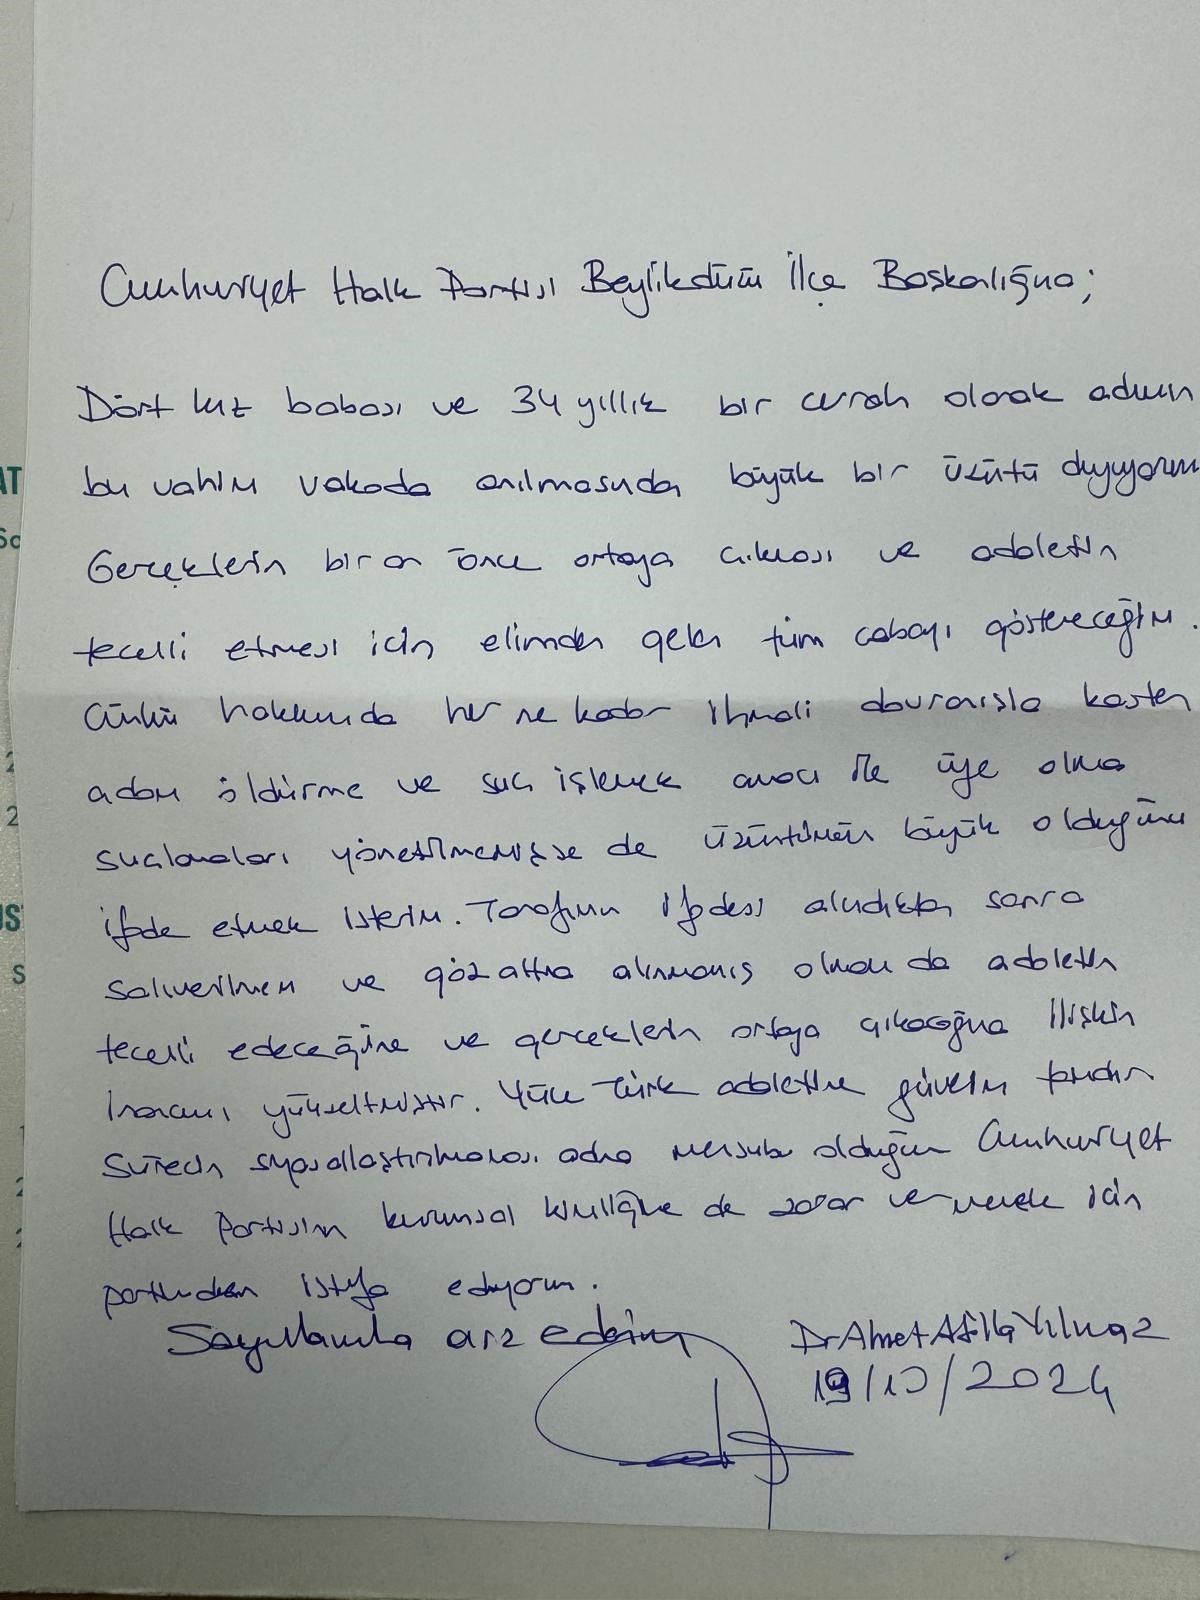 Cumhuriyet Halk Partisi Beylikdüzü İlçe Başkanlığına;
Dört kız babası ve 34 yıllık bir cerrah olarak adımın
AT
bu vahim vakada anılmasından büyük bir üzüntü duyuyorum
Sa
Gerçeklerin bir an önce ortaya çıkması ve adaletin
tecelli etmesi için elimden gelen tüm çabayı göstereceğim.
Çünkü hakkımda her ne kadar ihmali davranışla kasten
2
adam öldürme ve suç işlemek amacı ile üye olma
2
suçlamaları yöneltilmemişse de üzüntümün büyük olduğunu
US
ifade etmek isterim. Tarafımın ifadesi alındıktan sonra
S
salıverilmem ve göz altına alınmamış olmam da adaletin
tecelli edeceğine ve gerçeklerin ortaya çıkacağına ilişkin
inancımı yükseltmiştir. Yüce Türk adaletine güvenim tamdır.
Sürecin siyasallaştırılmaması adına mensubu olduğum Cumhuriyet
2
Halk Partisinin kurumsal kimliğine de zarar vermemek için
partimden istifa ediyorum.
Saygılarımla arz ederim Dr Ahmet Atilla Yılmaz
19/10/2024